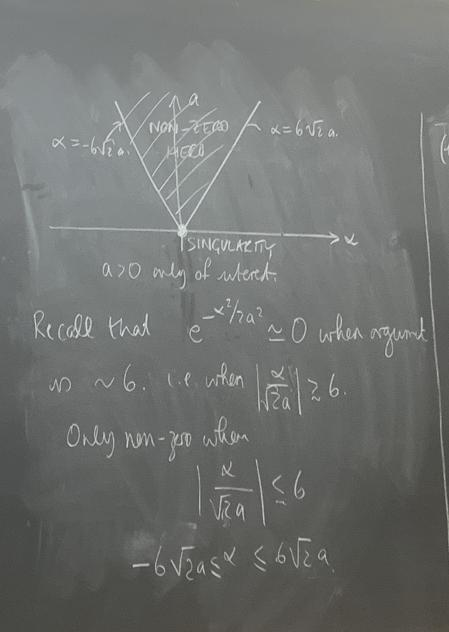 a
NON-ZERO
HERE
α = -6√2 a.
α = 6√2 a.
α
SINGULARITY
a>0 only of interest.
Recall that e^{-α²/2a²} ≃ 0 when argument
is ~6. i.e. when |α/√2a| ≳ 6.
Only non-zero when
|α/√2a| ≤ 6
-6√2a ≤ α ≤ 6√2a